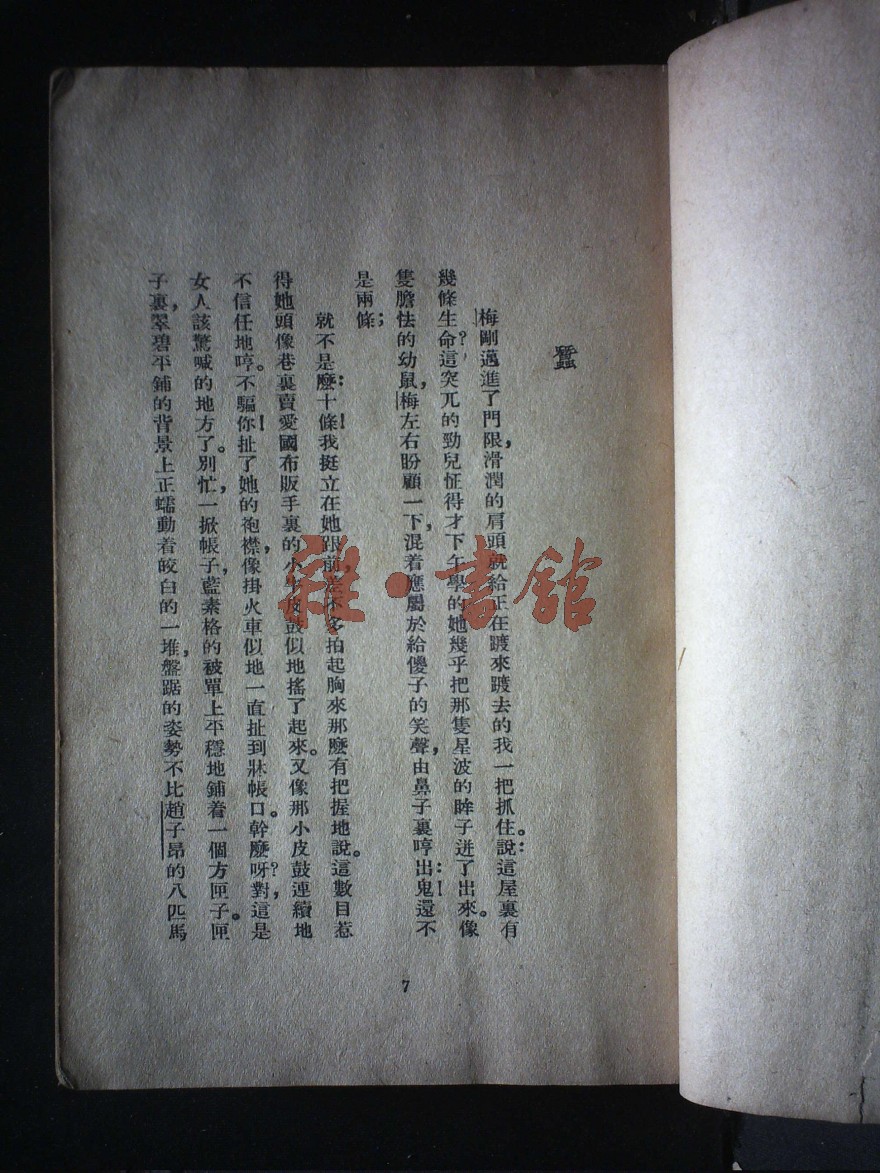 蠶
梅剛邁進了門限，滑潤的肩頭就給正在踱來踱去的我一把抓住。說：這屋裏有
幾條生命？這突兀的勁兒怔得才下午學的她幾乎把那隻星波的眸子迸了出來。像
隻膽怯的幼鼠，梅左右盼顧一下，混着應屬於給傻子的笑聲，由鼻子裏哼出：鬼！還不
是兩條；
就不是麽：十條！我挺立在她跟前，差不多拍起胸來那麽有把握地說。這數目惹
得她頭像巷裏賣愛國布販手裏的小牛皮鼓似地搖了起來。又像那小皮鼓連續地
不信任地哼。不騙你！扯了她的袍襟，像掛火車似地一直扯到牀帳口。幹麽呀？對，這是
女人該驚喊的地方了。別忙，一掀帳子，藍素格的被單上平穩地鋪着一個方匣子。匣
子裏，翠碧平鋪的背景上正蠕動着皎白的一堆，盤踞的姿勢不比趙子昂的八匹馬
7
雜·書館